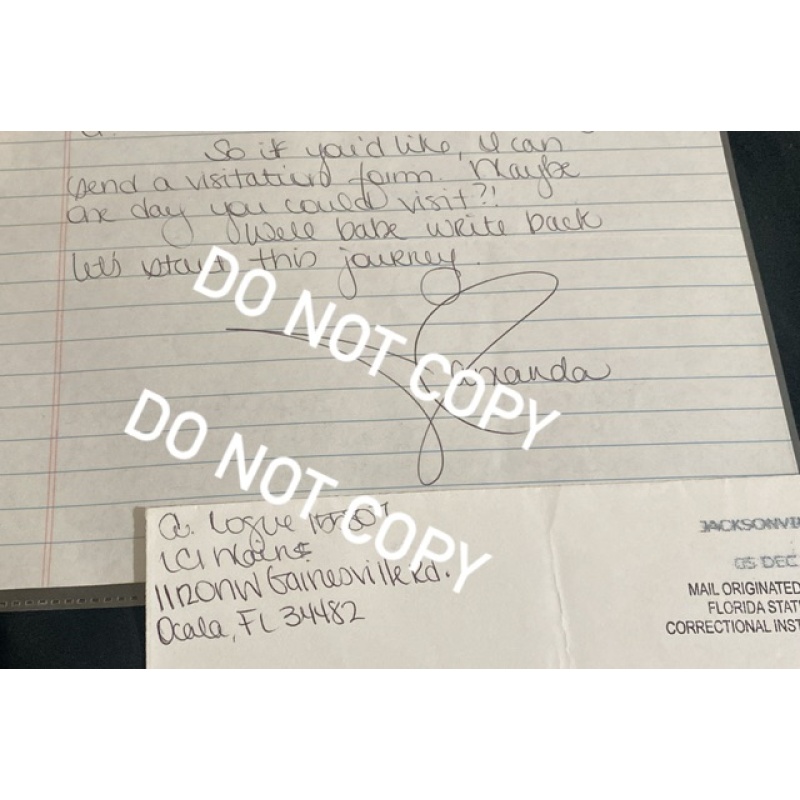 So if you'd like, I can
send a visitation form. Maybe
one day you could visit?!
Well babe write back
let's start this journey.
DO NOT COPY
DO NOT COPY
A. Logue
11120 NW Gainesville Rd.
Ocala, FL 34482
JACKSONVI
05 DEC
MAIL ORIGINATED
FLORIDA STAT
CORRECTIONAL INST